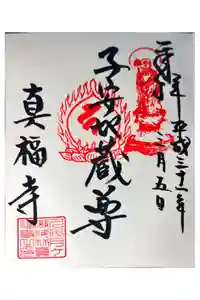 奉拝 平成三十一年
二月五日
子安地蔵尊
真福寺